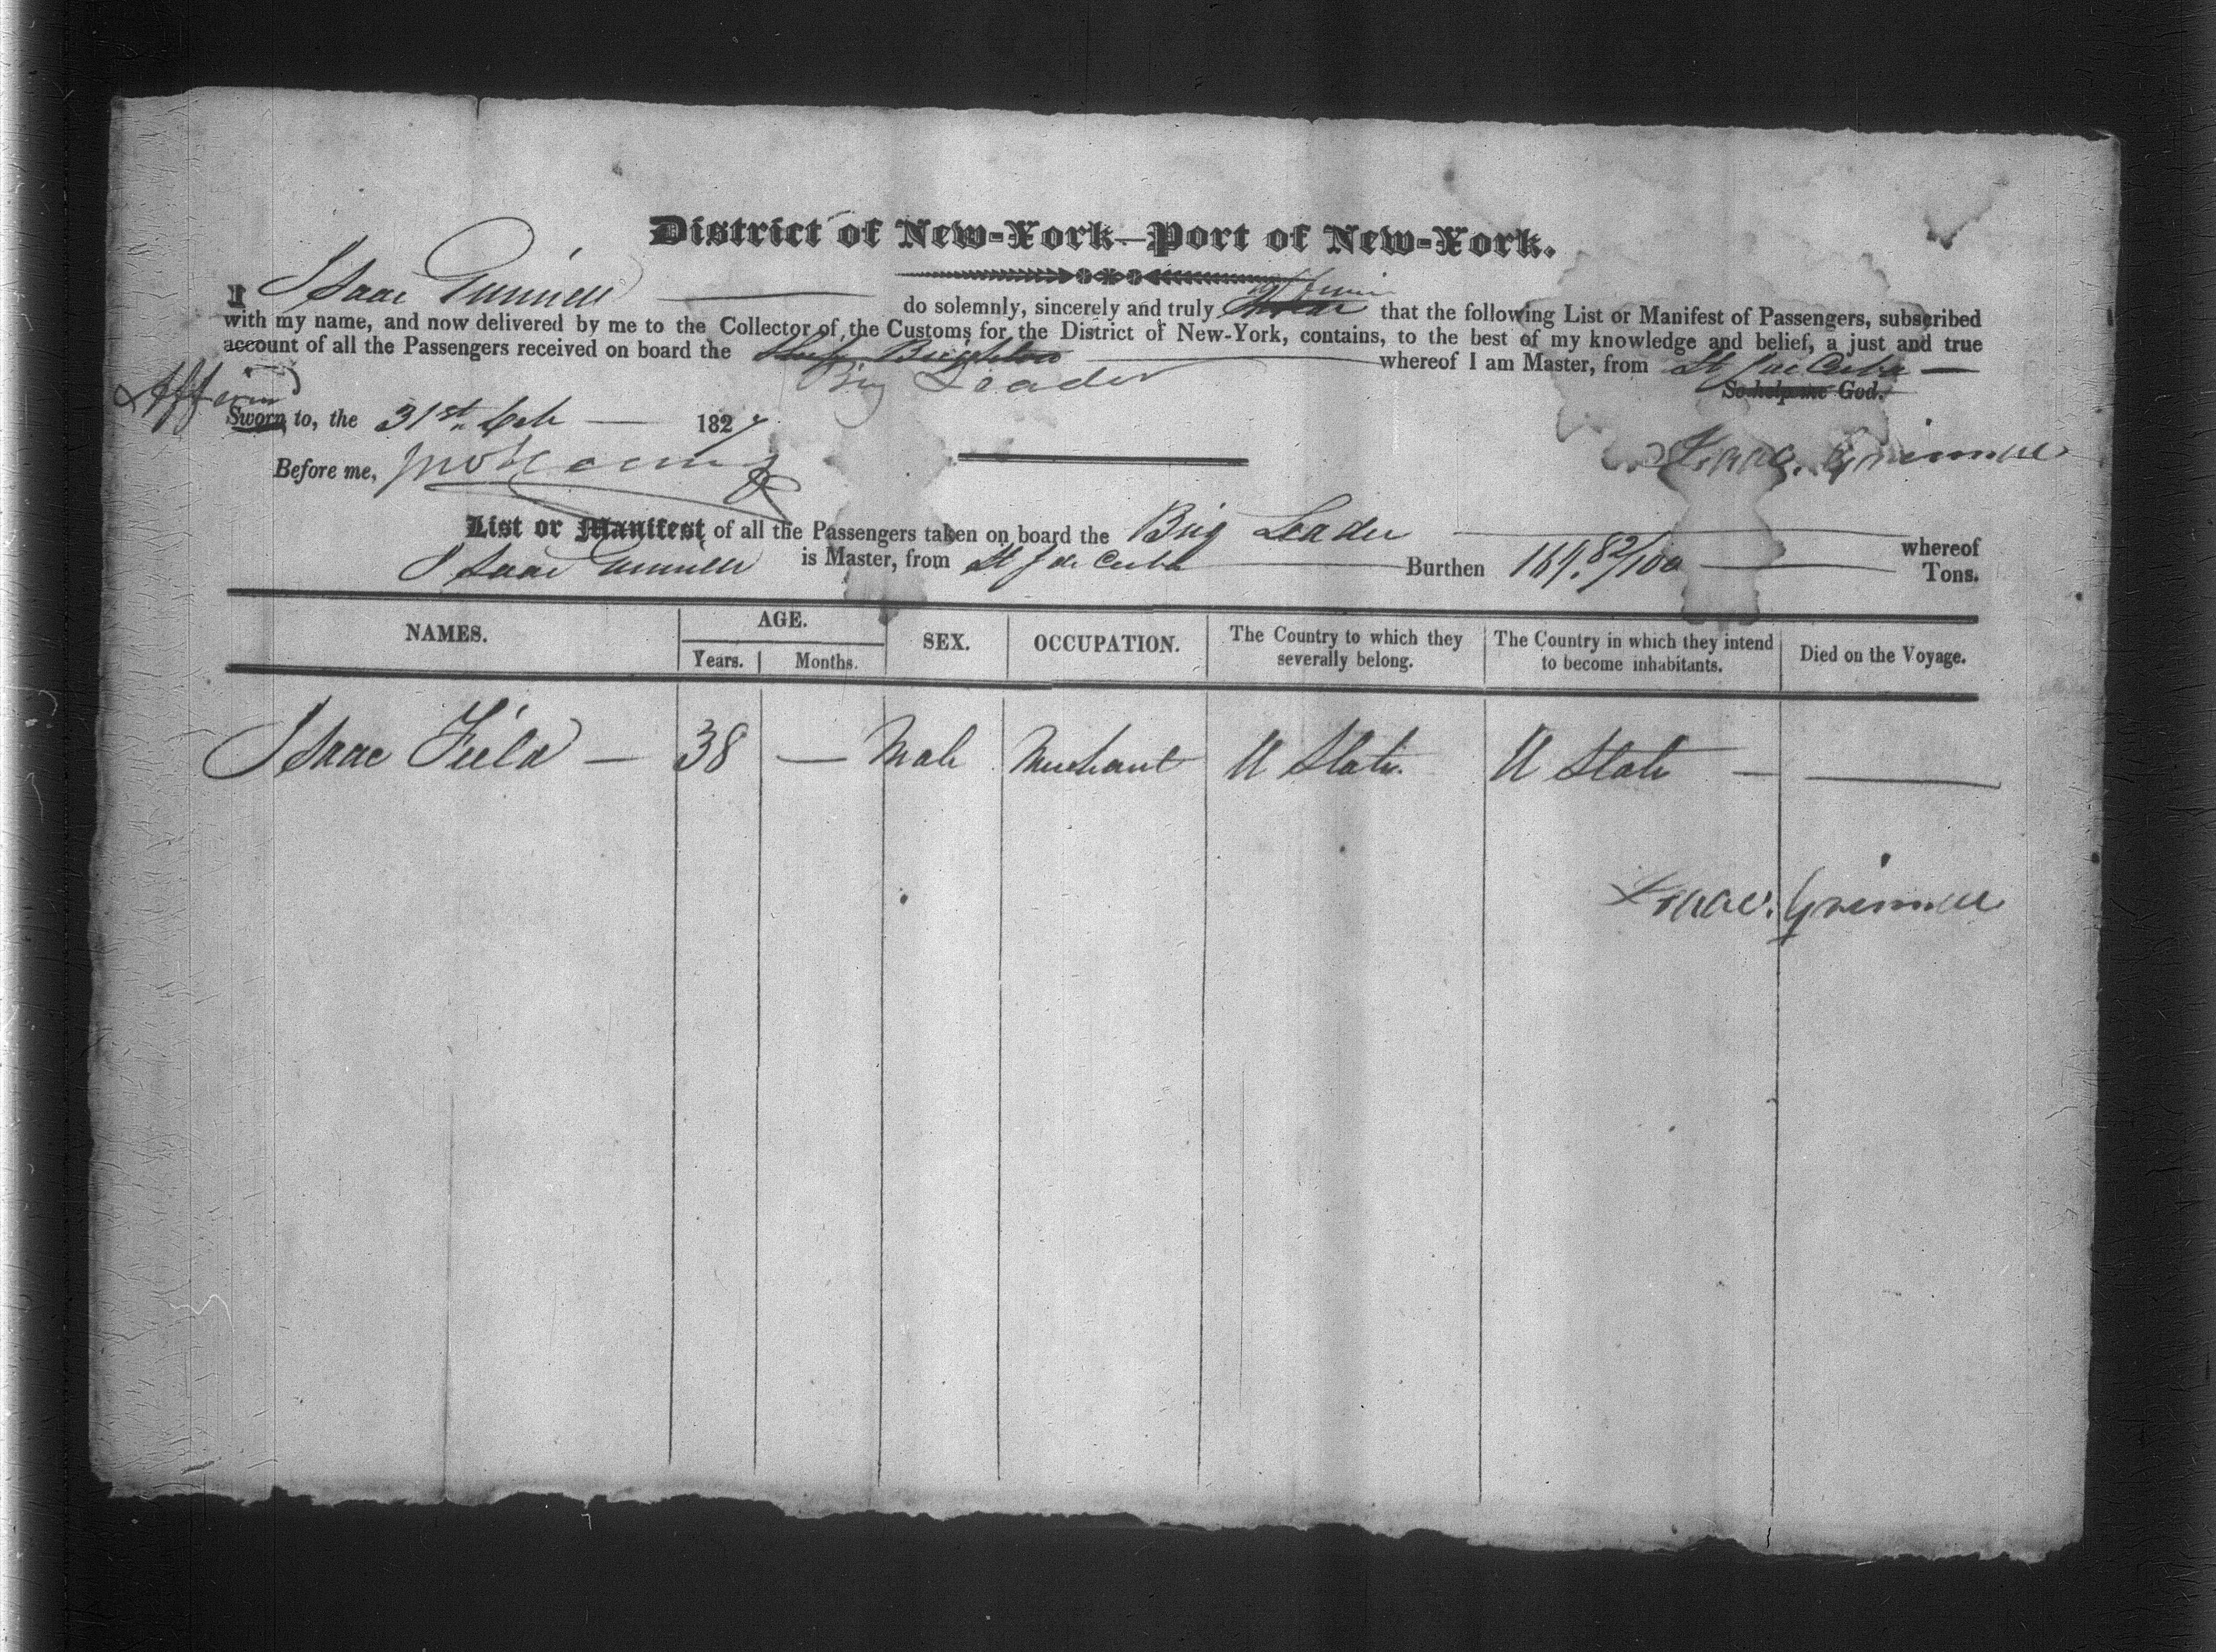 District of New-York—Port of New-York.
I Isaac Grinnell — do solemnly, sincerely and truly affirm that the following List or Manifest of Passengers, subscribed
with my name, and now delivered by me to the Collector of the Customs for the District of New-York, contains, to the best of my knowledge and belief, a just and true
account of all the Passengers received on board the Ship Brighton — whereof I am Master, from St Jue Cuba —
Brig Leader
So help me God.
Affirm
Sworn to, the 31st Octr — 1827
Isaac. Grinnell
Before me,
List or Manifest, of all the Passengers taken on board the Brig Leader — whereof
Isaac Grinnell is Master, from St J de Cuba — Burthen 82/100 — Tons.
NAMES. AGE. SEX. OCCUPATION. The Country to which they severally belong. The Country in which they intend to become inhabitants. Died on the Voyage.
Years. Months.
Isaac Field — 38 — Male Merchant U States. U States — —
Isaac. Grinnell